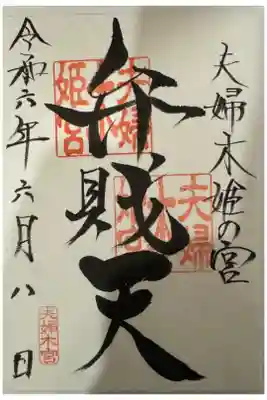 夫婦木姫の宮
弁財天
令和六年六月八日
夫婦木姫宮
夫婦木宮